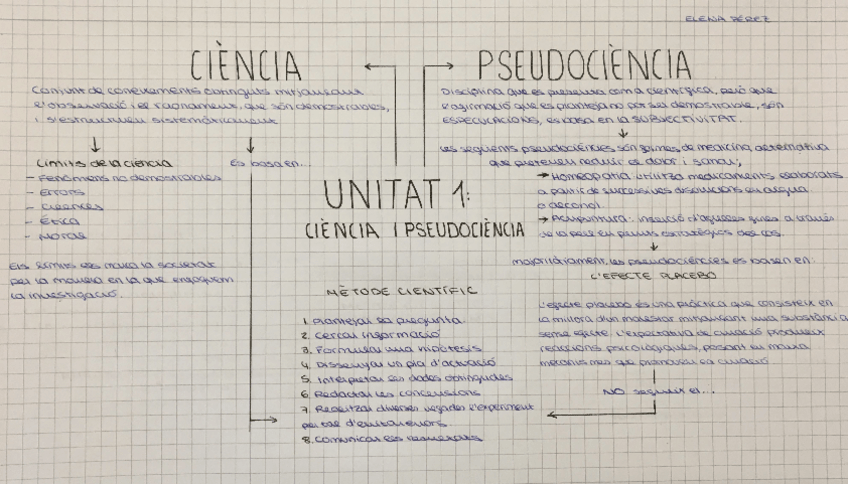 ELENA PÉREZ
CIÈNCIA
Conjunt de coneixements obtinguts mitjançant
l'observació i el raonament, que són demostrables,
i s'estructuren sistemàticament
Límits de la ciència
- Fenòmens no demostrables
- Errors
- Creences
- Ètica
- Moral
Els límits els marca la societat
per la manera en la que enfoquem
la investigació.
Es basa en...
PSEUDOCIÈNCIA
Disciplina que es presenta com a científica, però que
l'afirmació que es planteja no pot ser demostrable, són
ESPECULACIONS, es basa en la SUBJECTIVITAT.
Les següents pseudociències són gammes de medicina alternativa
que pretenen reduir el dolor i sanar;
→ Homeopatia: utilitza medicaments elaborats
a partir de successives dissolucions en aigua
o alcohol.
→ Acupuntura: inserció d'agulles fines a través
de la pell en punts estratègics del cos.
majoritàriament, les pseudociències es basen en:
L'EFECTE PLACEBO
L'efecte placebo és una pràctica que consisteix en
la millora d'un malestar mitjançant una substància
sense efecte. L'expectativa de curació produeix
reaccions psicològiques, posant en marxa
mecanismes que promouen la curació
NO segueix el...
UNITAT 1:
CIÈNCIA I PSEUDOCIÈNCIA
MÈTODE CIENTÍFIC
1. Plantejar la pregunta.
2. Cercar informació
3. Formular una hipòtesis
4. Dissenyar un pla d'actuació
5. Interpretar les dades obtingudes
6. Redactar les conclusions
7. Realitzar diverses vegades l'experiment
per tal d'evitar errors.
8. Comunicar els resultats